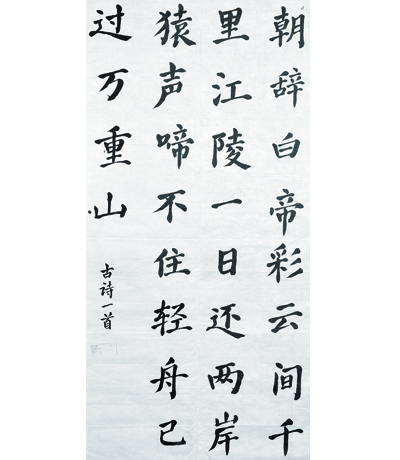 朝辞白帝彩云间千
里江陵一日还两岸
猿声啼不住轻舟已
过万重山
古诗一首